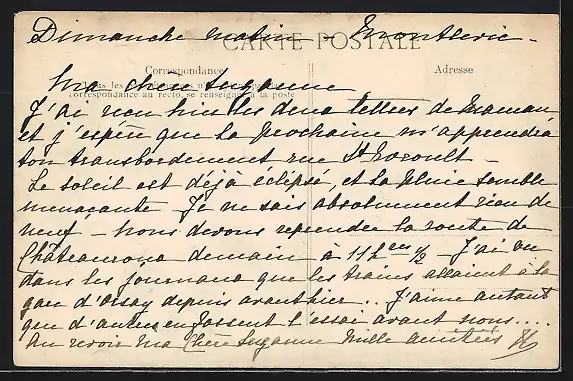 Dimanche matin - Montlevic -
CARTE POSTALE
Correspondance
Adresse
correspondance au recto, se renseigner à la poste
Ma chère Suzanne
J'ai reçu hier les deux lettres de Maman
et j'espère que la prochaine m'apprendra
ton transbordement rue St
Le soleil est déjà éclipsé, et la pluie semble
menaçante - Je ne sais absolument rien de
neuf - Nous devons reprendre la route de
Châteauroux demain à 11h 1/2 - J'ai vu
dans les journaux que les trains allaient à la
gare d'Orsay depuis avant hier... J'aime autant
que d'autres en fassent l'essai avant nous....
Au revoir Ma Chère Suzanne Mille amitiés